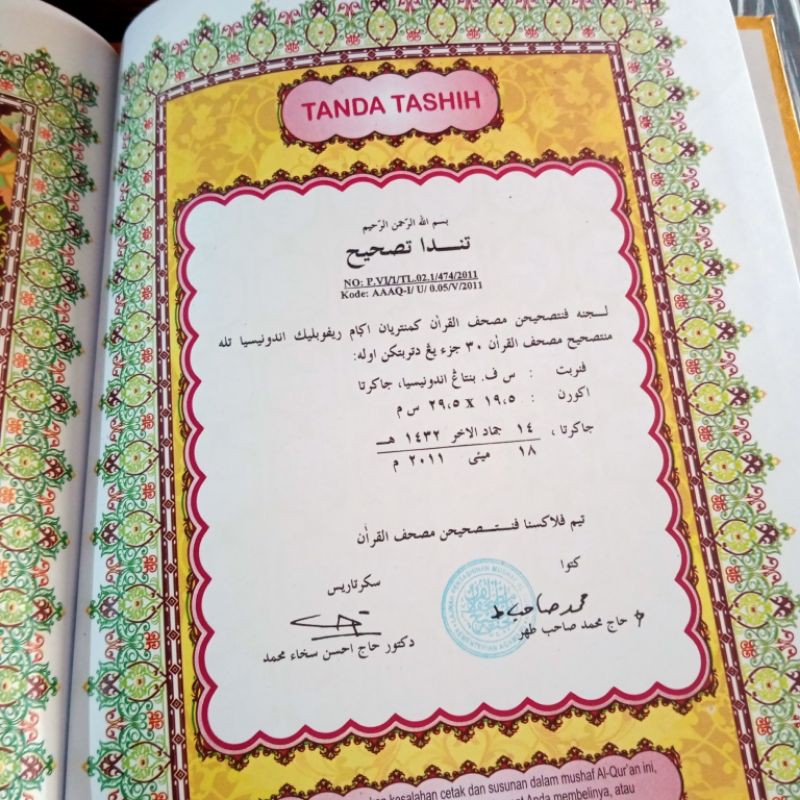 TANDA TASHIH
بسم الله الرّحمن الرّحيم
تندا تصحيح
NO: P.VI/1/TL.02.1/474/2011
Kode: AAAQ-I/ U/ 0.05/V/2011
لجنه فنتصحيحن مصحف القرأن كمنتريان اݢام ريفوبليك اندونيسيا تله
منتصحيح مصحف القرأن ٣٠ جزء يڠ دتربتكن اوله:
فنربت : س ف. بنتاڠ اندونيسيا، جاكرتا
اكورن : ١٩،٥ x ٢٩،٥ س م
جاكرتا ، ١٤ جماد الاخر ١٤٣٢ هـ
١٨ ميئى ٢٠١١ م
تيم فلاكسنا فنتصحيحن مصحف القرأن
كتوا
سكرتاريس
محمد صاحب ط
حاج محمد صاحب طهر
دكتور حاج احسن سخاء محمد
kesalahan cetak dan susunan dalam mushaf Al-Qur'an ini,
Anda membelinya, atau